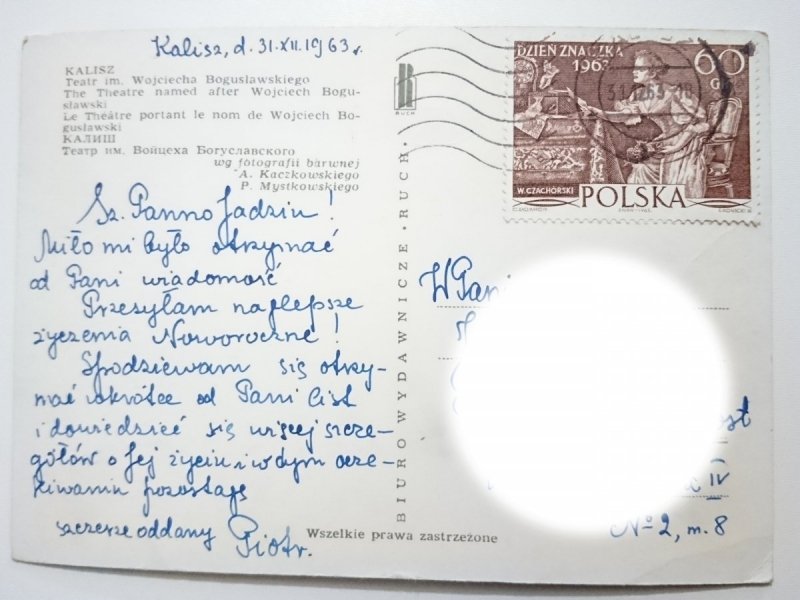 Kalisz, d. 31.XII.1963 r.
KALISZ
Teatr im. Wojciecha Bogusławskiego
The Theatre named after Wojciech Bogu-
sławski
Le Théâtre portant le nom de Wojciech Bo-
gusławski
КАЛИШ
Театр им. Войцеха Богуславского
wg fotografii barwnej
A. Kaczkowskiego
P. Mystkowskiego
RUCH
DZIEŃ ZNACZKA
1963
60
GR
W. CZACHÓRSKI
POLSKA
Sz. Panno Jadziu!
Miło mi było otrzymać
od Pani wiadomość
Przesyłam najlepsze
życzenia Noworoczne!
Spodziewam się otrzy-
mać wkrótce od Pani list
i dowiedzieć się więcej szcze-
gółów o Jej życiu, i w dym ocze-
kiwaniu pozostaję
szczerze oddany Piotr.
BIURO WYDAWNICZE "RUCH"
Wszelkie prawa zastrzeżone
W Pani
IV
No 2, m. 8